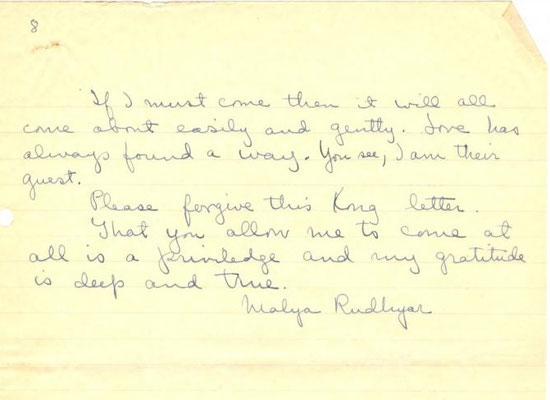 8
If I must come then it will all
come about easily and gently. Love has
always found a way. You see, I am their
guest.
Please forgive this long letter.
That you allow me to come at
all is a priviledge and my gratitude
is deep and true.
Malya Rudhyar